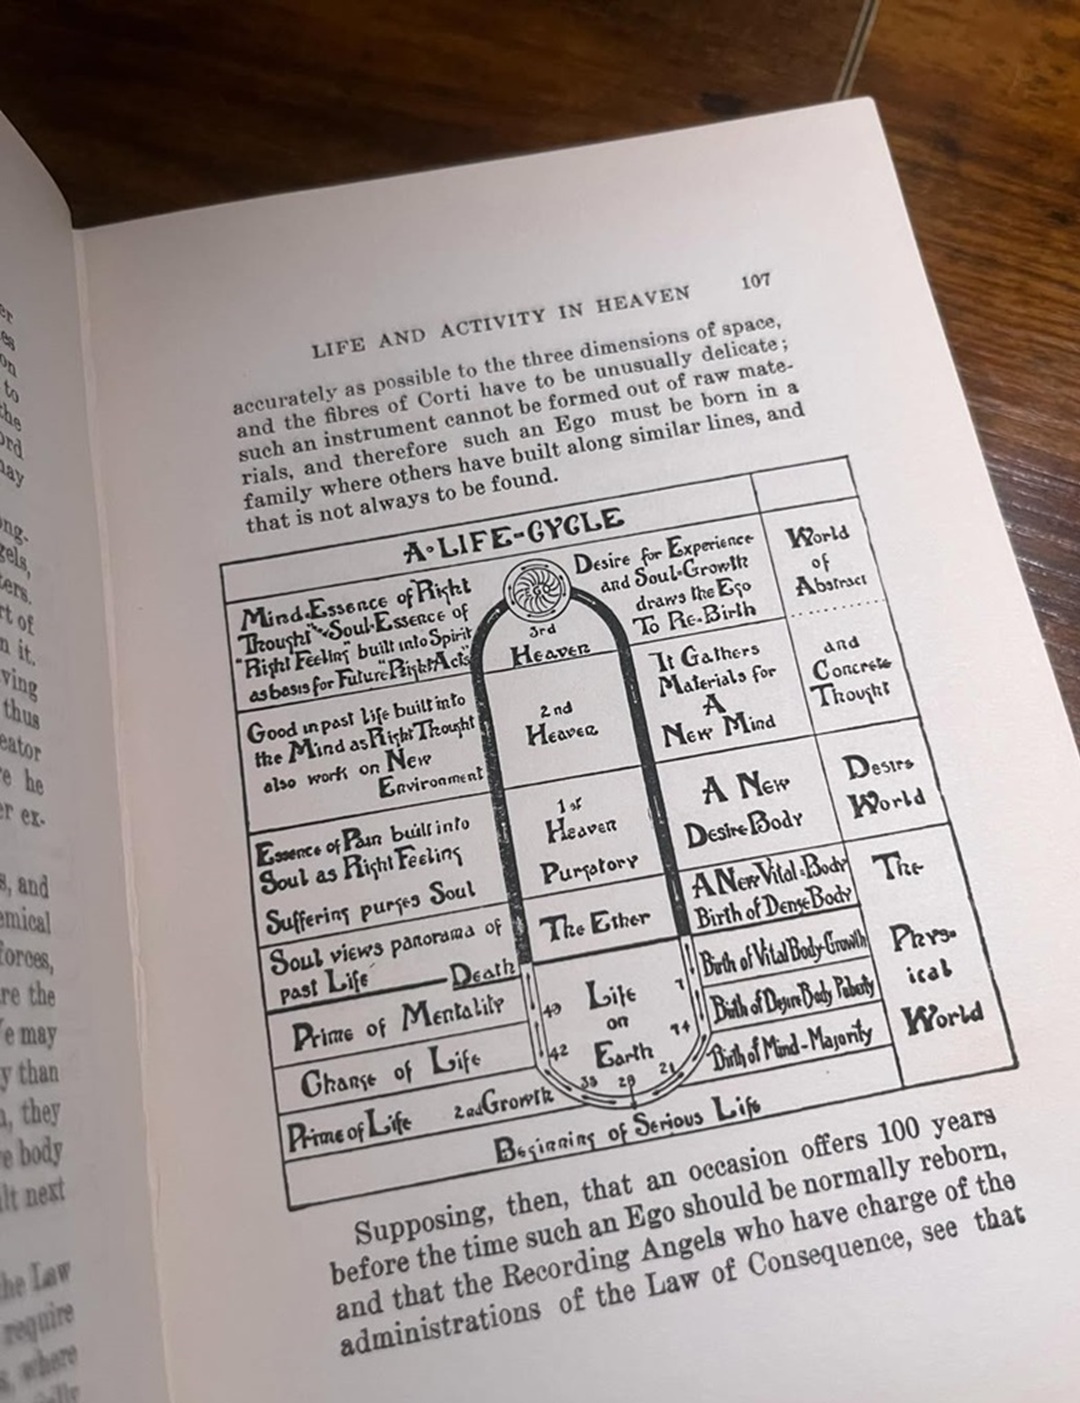 er
es
on
to
the
ord
may
ng-
gels,
ters.
rt of
n it.
ving
thus
eator
re he
er ex-
s, and
emical
forces,
re the
e may
y than
n, they
e body
ilt next
the Law
require
s, where
LIFE AND ACTIVITY IN HEAVEN 107
accurately as possible to the three dimensions of space,
and the fibres of Corti have to be unusually delicate;
such an instrument cannot be formed out of raw mate-
rials, and therefore such an Ego must be born in a
family where others have built along similar lines, and
that is not always to be found.
A·LIFE-CYCLE
Mind-Essence of Right
Thought and Soul-Essence of
"Right Feeling" built into Spirit
as basis for Future "Right Acts"
3rd
Heaven
Desire for Experience
and Soul-Growth
draws the Ego
To Re-Birth
World
of
Abstract
Good in past life built into
the Mind as Right Thought
also work on New
Environment
2nd
Heaven
It Gathers
Materials for
A
New Mind
and
Concrete
Thought
Essence of Pain built into
Soul as Right Feeling
Suffering purges Soul
1st
Heaven
Purgatory
A New
Desire Body
Desire
World
Soul views panorama of
past Life Death
The Ether
A New Vital-Body
Birth of Dense Body
The
Phys-
ical
World
Prime of Mentality
Change of Life
Prime of Life 2nd Growth
49
42
35
28
21
14
7
Life
on
Earth
Birth of Vital Body-Growth
Birth of Desire Body Puberty
Birth of Mind-Majority
Beginning of Serious Life
Supposing, then, that an occasion offers 100 years
before the time such an Ego should be normally reborn,
and that the Recording Angels who have charge of the
administrations of the Law of Consequence, see that